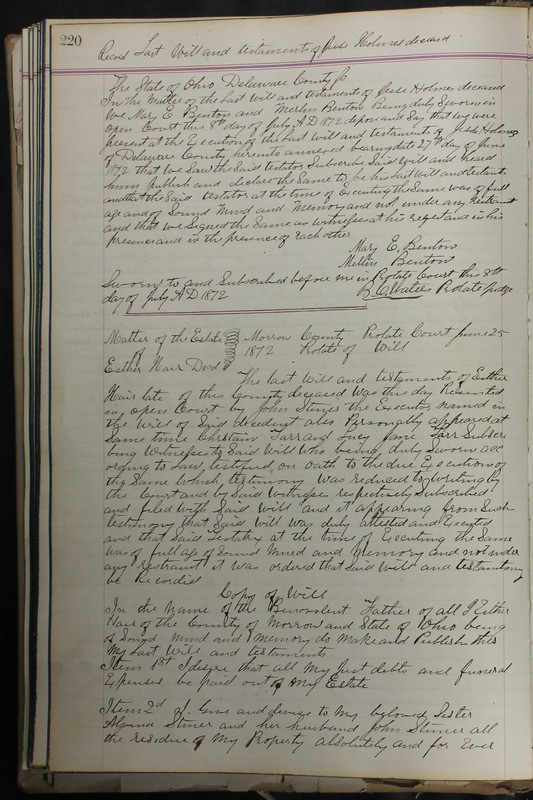 220
Record Last Will and testament of Jesse Holmes deceased
The State of Ohio Delaware County ss
In the Matter of the last will and testaments of Jesse Holmes deceased
We Mary E Benton and Merlin Benton Being duly Sworn in
open Court this 8th day of July A.D 1872 depose and Say that we were
present at the Execution of the last will and testaments of Jesse Holmes
of Delaware County hereunto annexed bearing date 27th day of June
1872 that we Saw the Said testator Subscribe Said will and heard
him publish and declare the Same to be his last will and testament
and that the Said testator at the time of Executing the Same was of full
age and of Sound Mind and Memory and not under any Restraint
and that we Signed the Same as witnesses at his request and in his
presence and in the presence of Each other
Mary E. Benton
Merlin Benton
Sworn to and Subscribed before me in Probate Court this 8th
day of July A.D 1872
B. C. Waters Probate Judge
Matter of the Estate Morrow County Probate Court June 25
of 1872 Probate of Will
Esther Hair Decd
The last Will and testaments of Esther
Hair late of this County deceased was this day Presented
in open Court by John Stiner the Executor named in
the Will of Said decedent also Personally appeared at
Same time Christain Tarr and Lucy Jane Tarr Subscri
bing Witnesses to Said Will Who being duly Sworn acc
ording to Law, testified, on Oath to the due Execution of
the Same Which testimony was reduced to writing by
the Court and by Said Witnesses respectively Subscribed
and filed with Said will and it appearing from Such
testimony that Said Will was duly attested and Executed
and that Said testatrix at the time of Executing the Same
was of full age of Sound Mind and Memory and not under
any restraint it was ordered that Said Will and testimony
be Recorded
Copy of Will
In the Name of the Benevolent Father of all I Esther
Hair of the County of Morrow and State of Ohio being
of Sound mind and Memory do Make and Publish this
My Last Will and testaments
Item 1st I desire that all My Just debts and funeral
Expenses be paid out of My Estate
Item 2d I. Give and devise to My beloved Sister
Stiner and her husband John Stiner all
the residue of My Property absolutely and for Ever